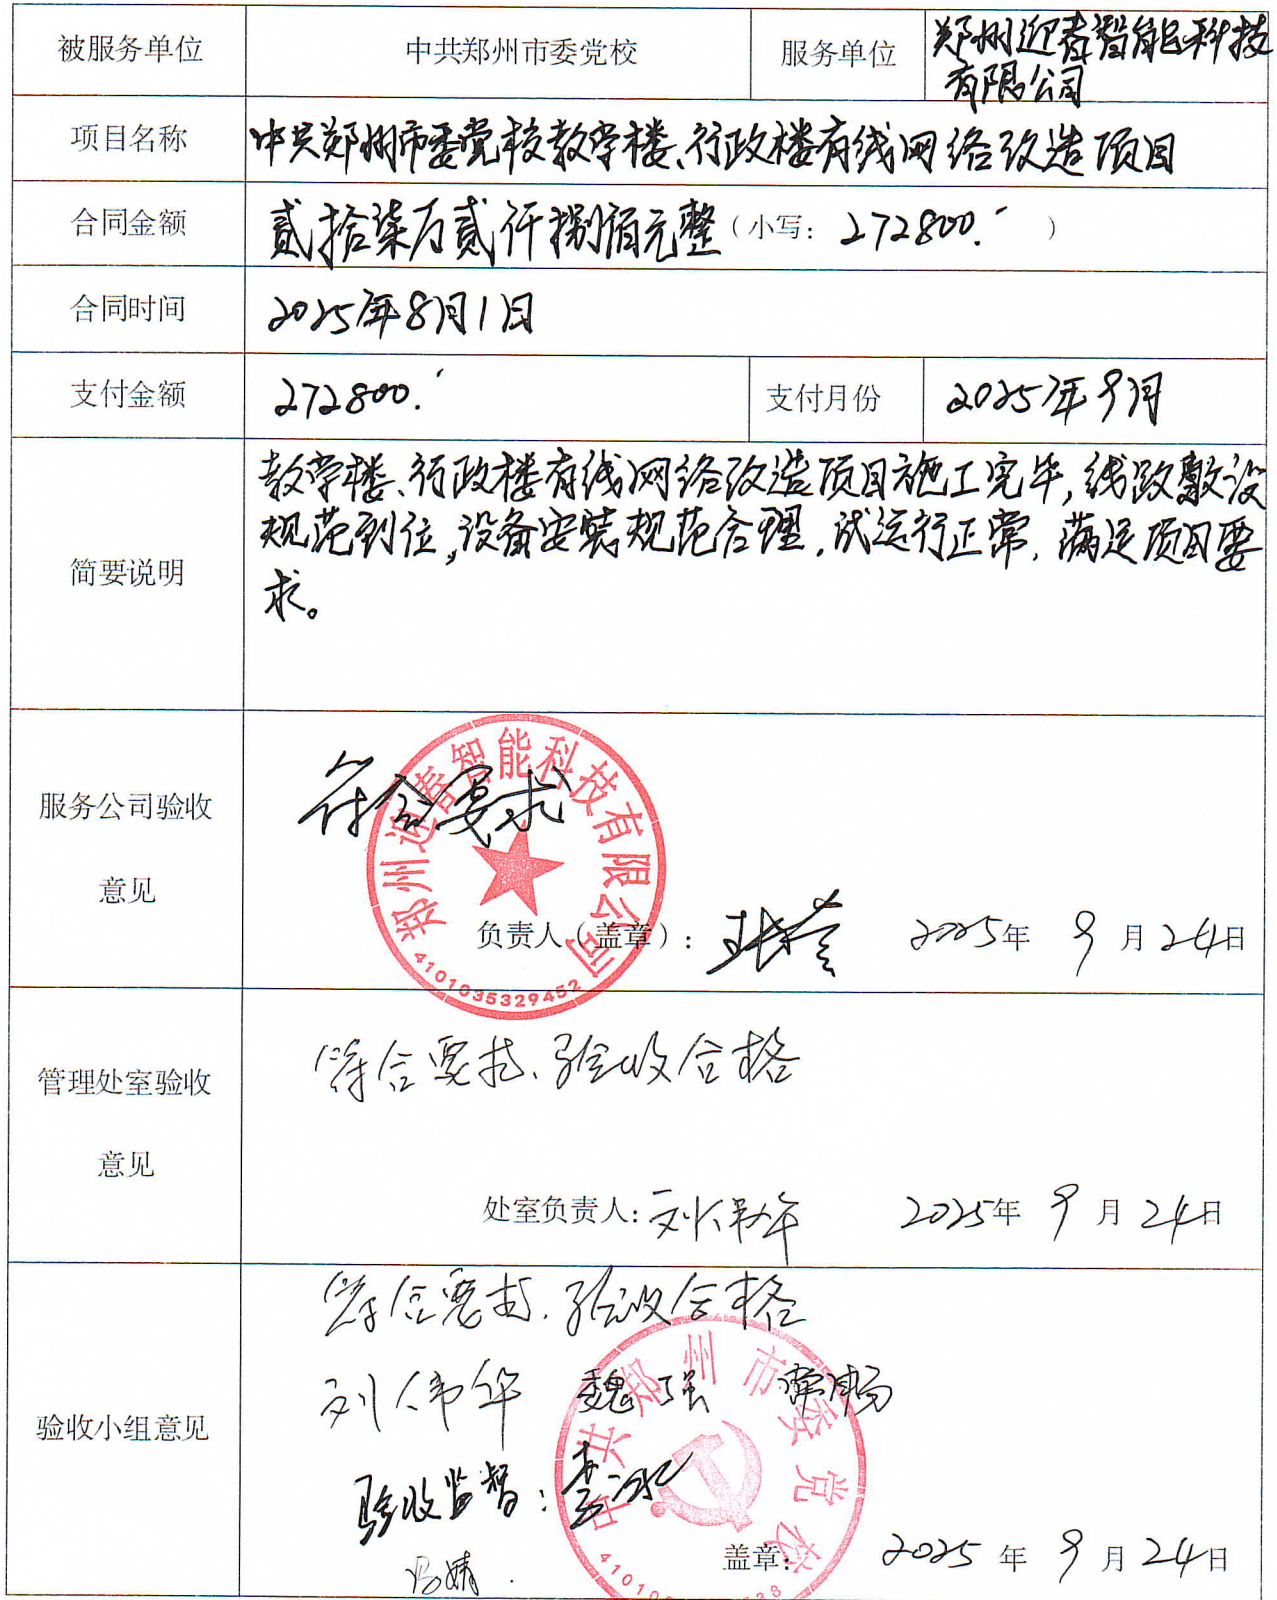 被服务单位 中共郑州市委党校 服务单位 郑州迎春智能科技
有限公司
项目名称 中共郑州市委党校教学楼、行政楼有线网络改造项目
合同金额 贰拾柒万贰仟捌佰元整（小写：272800. ）
合同时间 2025年8月1日
支付金额 272800. 支付月份 2025年9月
简要说明
教学楼、行政楼有线网络改造项目施工完毕,线路敷设
规范到位,设备安装规范合理,试运行正常,满足项目要
求。
服务公司验收
意见
符合要求
郑州迎春智能科技有限公司
4101035329452
负责人（盖章）： 2025年 9 月 24日
管理处室验收
意见
符合要求、验收合格
处室负责人:刘伟华 2025年 9 月 24日
验收小组意见
符合要求、验收合格
刘伟华 魏强
验收监督：
中共郑州市委党校
盖章: 2025 年 9 月 24日